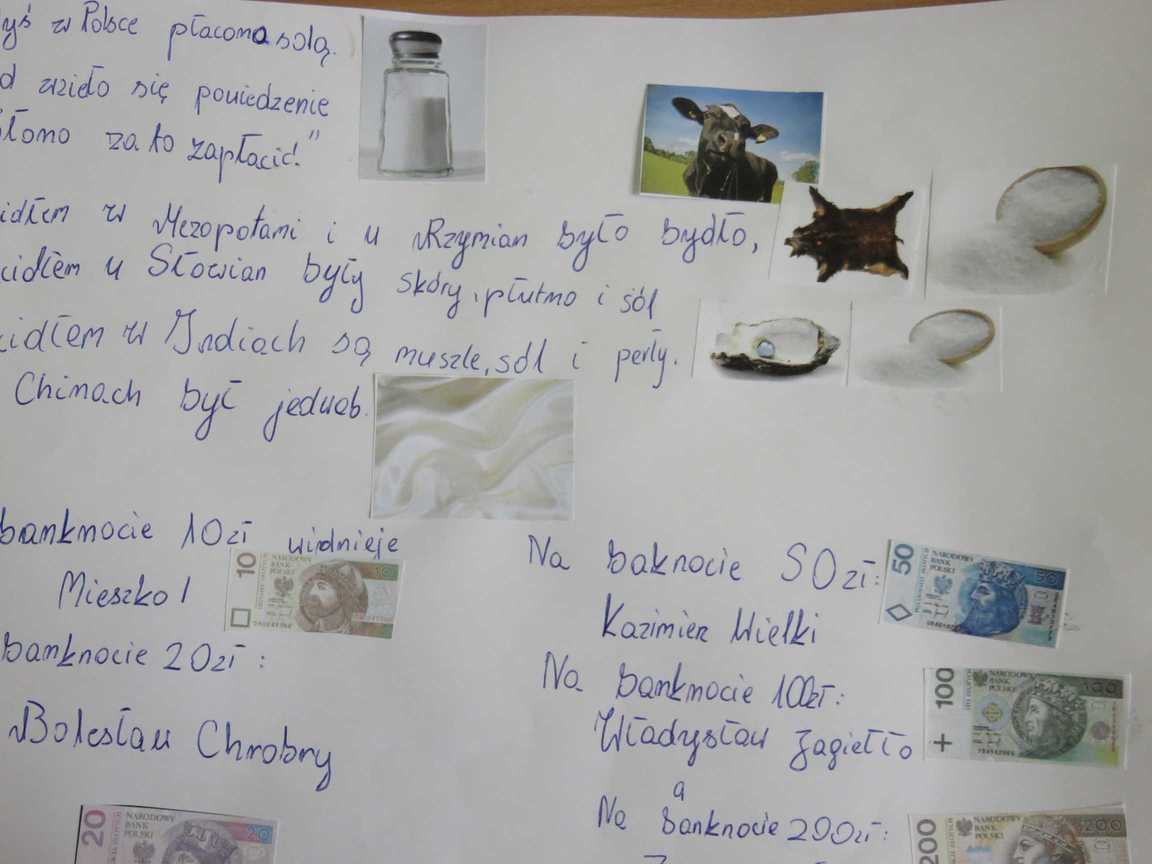 yś w Polsce płacono solą.
d wzieło się powiedzenie
słomo za to zapłacić."
idłem w Mezopotami i u Rzymian było bydło,
cidłem u Słowian były skóry, płutno i sól
cidłem w Indiach są muszle, sól i perły.
Chinach był jedwab.
banknocie 10zł widnieje
Mieszko I
banknocie 20zł :
Bolesław Chrobry
Na baknocie 50zł:
Kazimierz Wielki
Na banknocie 100zł:
Władysław Jagiełło
a
Na banknocie 200zł:
10 NARODOWY BANK POLSKI 10
50 NARODOWY BANK POLSKI 50
100 NARODOWY BANK POLSKI 100
20 NARODOWY BANK POLSKI 20
200 NARODOWY BANK POLSKI 200